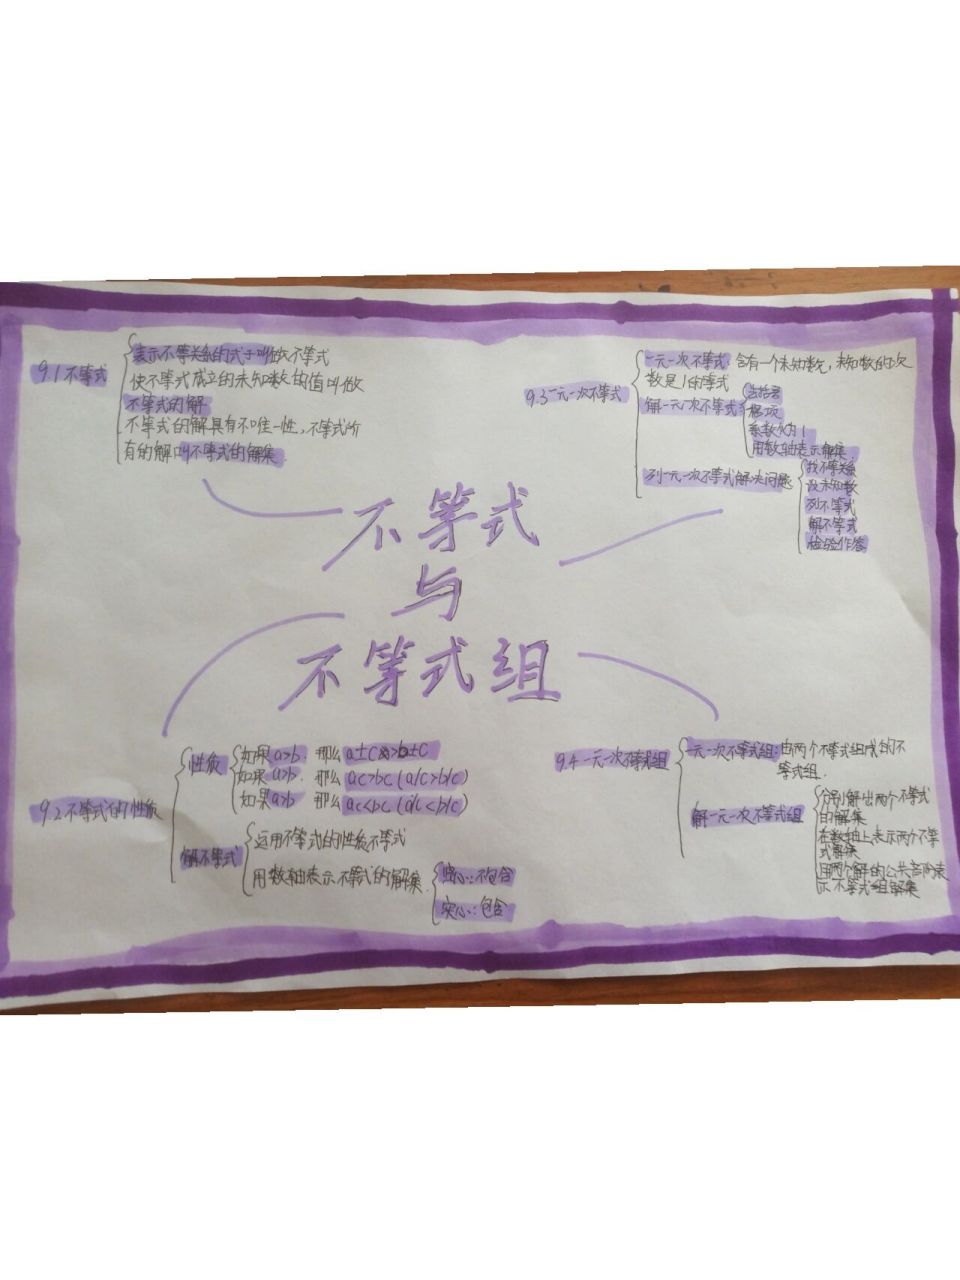 9.1 不等式
表示不等关系的式子叫做不等式
使不等式成立的未知数的值叫做
不等式的解
不等式的解具有不唯一性,不等式所
有的解叫不等式的解集.
9.3 一元一次不等式
一元一次不等式:含有一个未知数,未知数的次
数是1的等式
解一元一次不等式
去括号
移项
系数化为1
用数轴表示解集
列一元一次不等式解决问题
找不等关系
设未知数
列不等式
解不等式
检验作答
不等式
与
不等式组
9.2不等式的性质
性质
如果a>b. 那么a±c>b±c
如果a>b. 那么ac>bc(a/c>b/c)
如果a>b 那么ac<bc(a/c<b/c)
解不等式
运用不等式的性质不等式
用数轴表示不等式的解集.
空心:不包含
实心:包含
9.4 一元一次不等式组
一元一次不等式组:由两个不等式组成的不
等式组.
解一元一次不等式组
分别解出两个不等式
的解集
在数轴上表示两个不等
式解集
用两个解的公共部分表
示不等式组解集